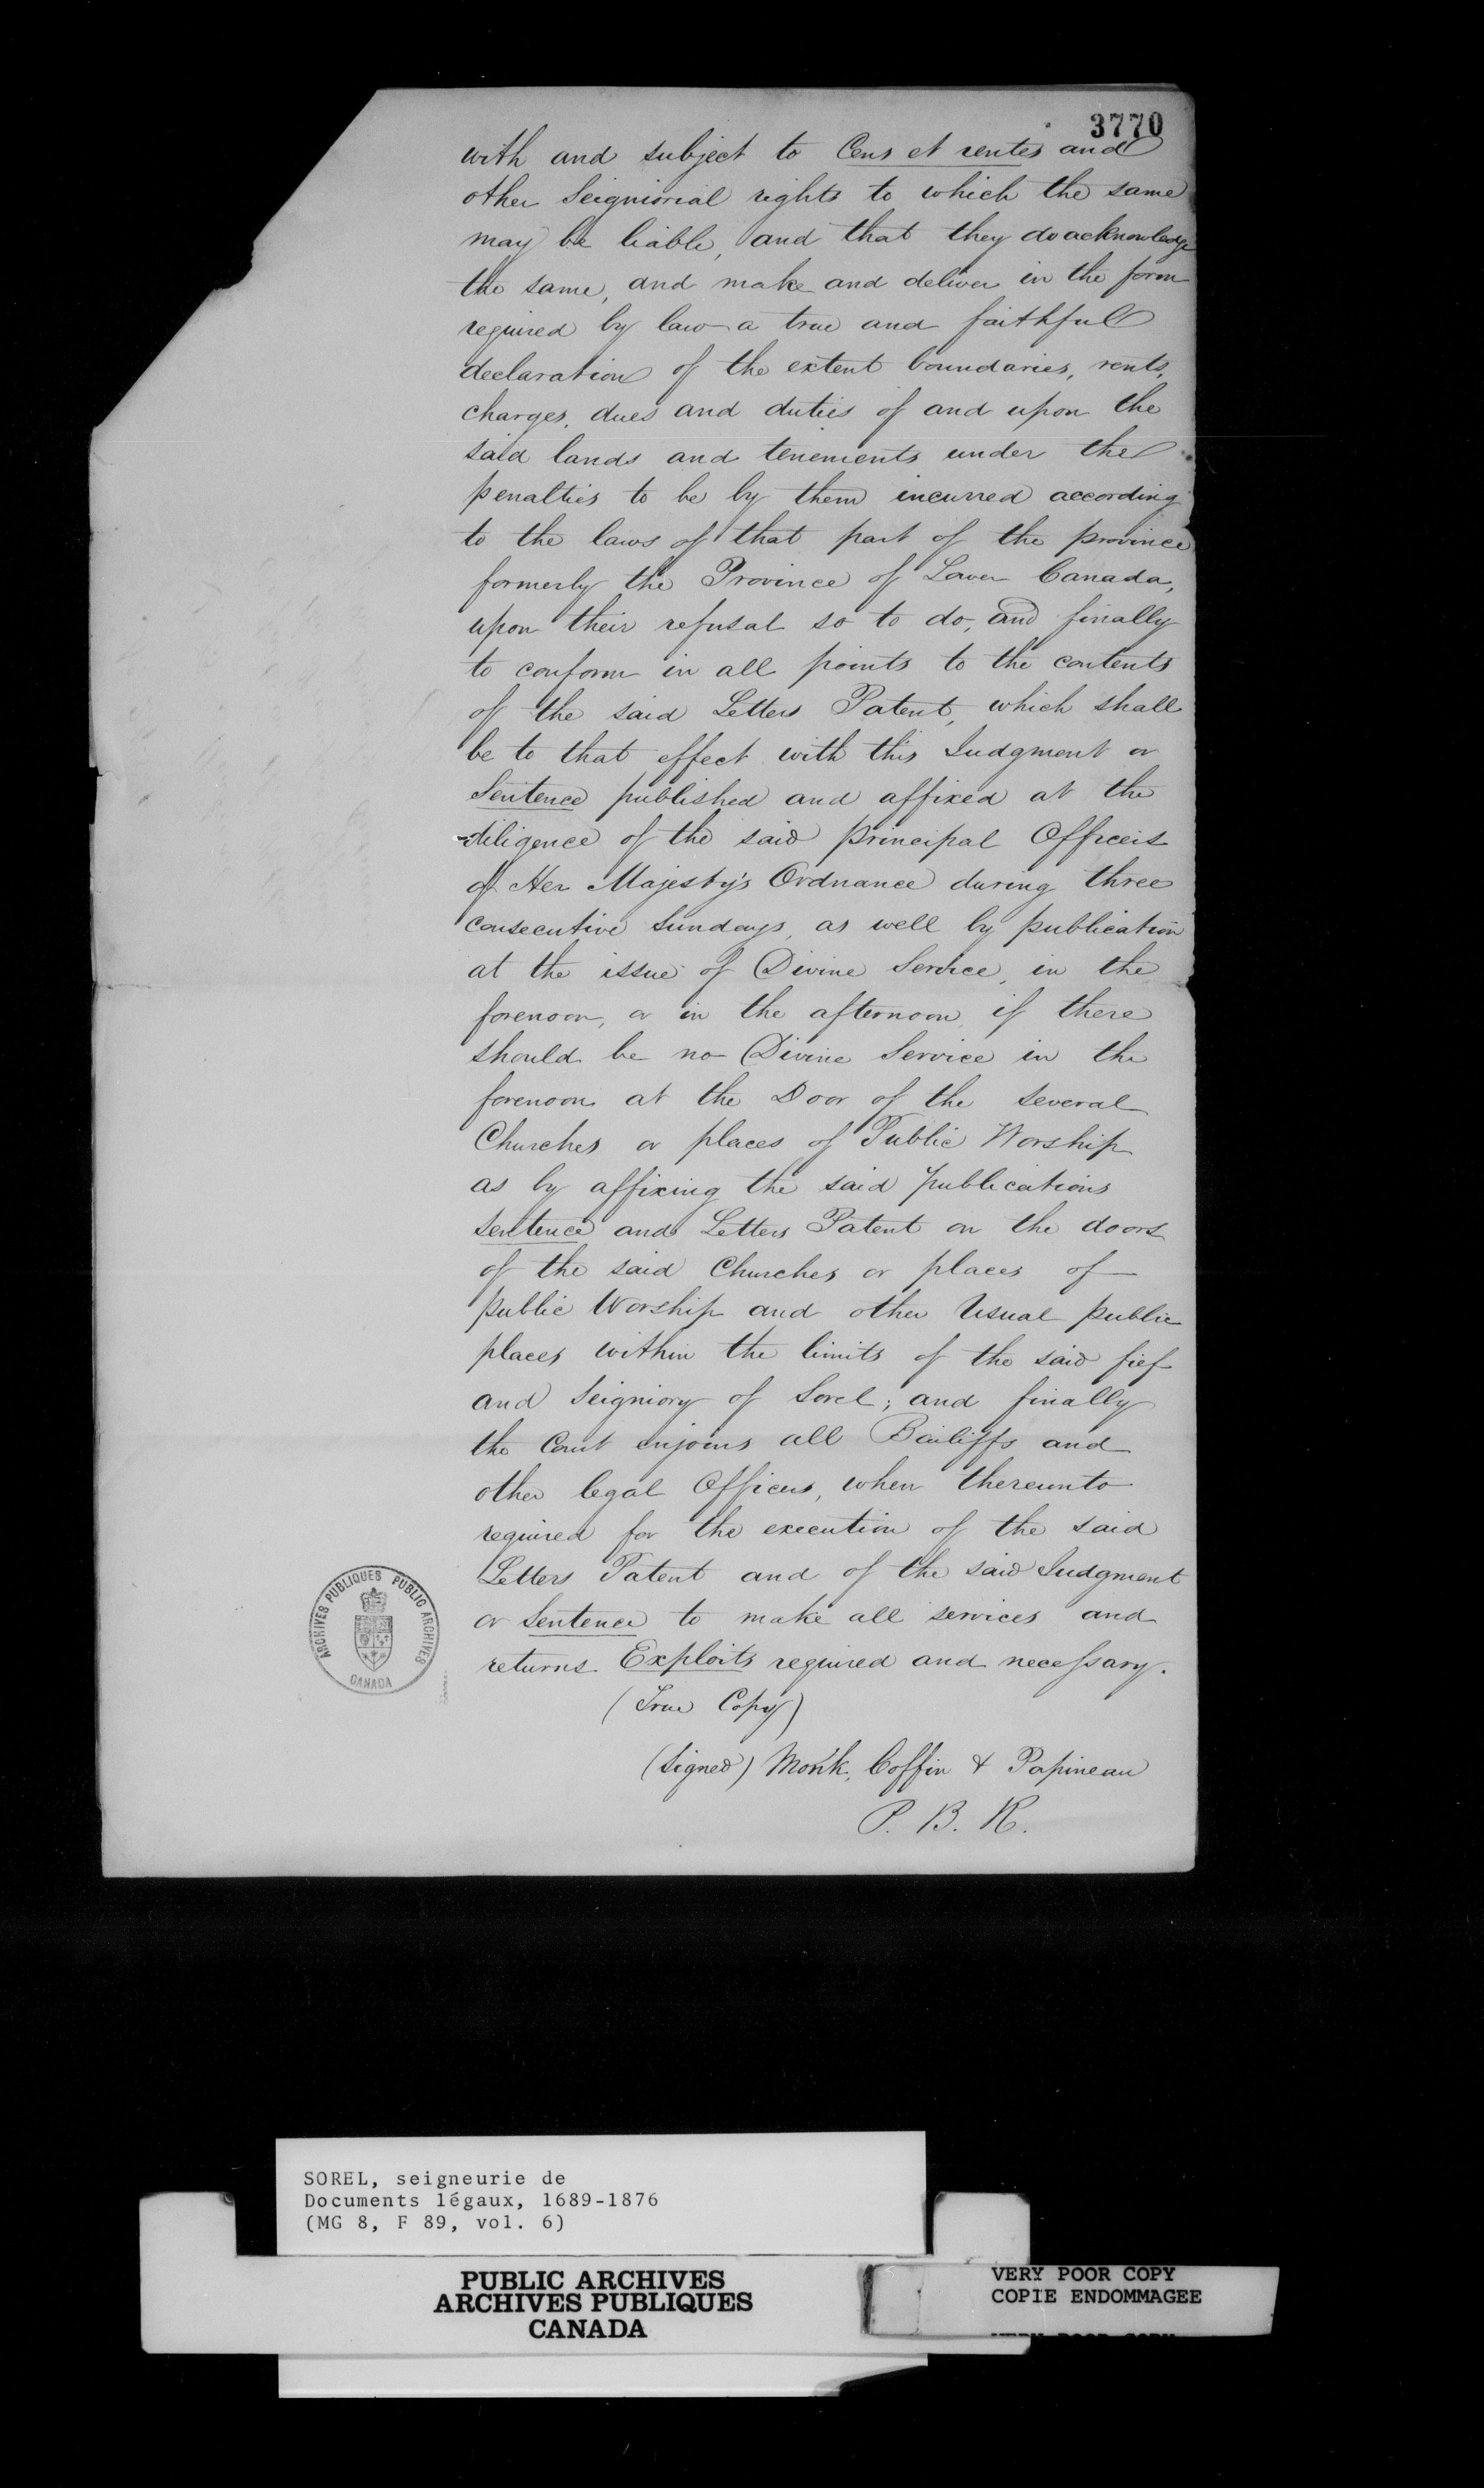 3770
with and subject to Cens et rentes and
other Seigniorial rights to which the same
may be liable, and that they do acknowledge
the same, and make and deliver in the form
required by law a true and faithful
declaration of the extent boundaries, rents,
charges, dues and duties of and upon the
said lands and tenements under the
penalties to be by them incurred according
to the laws of that part of the province
formerly the Province of Lower Canada,
upon their refusal so to do, and finally
to conform in all points to the contents
of the said Letters Patent, which shall
be to that effect with this Judgment or
Sentence published and affixed at the
diligence of the said principal Officers
of Her Majesty's Ordnance during three
consecutive Sundays, as well by publication
at the issue of Divine Service, in the
forenoon, or in the afternoon, if there
should be no Divine Service in the
forenoon at the Door of the several
Churches or places of Public Worship
as by affixing the said publications
sentence and Letters Patent on the doors
of the said Churches or places of
public Worship and other Usual public
places within the limits of the said fief
and Seigniory of Sorel; and finally
the Court enjoins all Bailiffs and
other legal Officers, when thereunto
required for the execution of the said
Letters Patent and of the said Judgment
or Sentence to make all services and
returns. Exploits required and necessary.
(True Copy)
(Signed) Monk, Coffin & Papineau
P. B. R.
ARCHIVES PUBLIQUES PUBLIC ARCHIVES
CANADA
SOREL, seigneurie de
Documents légaux, 1689-1876
(MG 8, F 89, vol. 6)
PUBLIC ARCHIVES
ARCHIVES PUBLIQUES
CANADA
VERY POOR COPY
COPIE ENDOMMAGEE